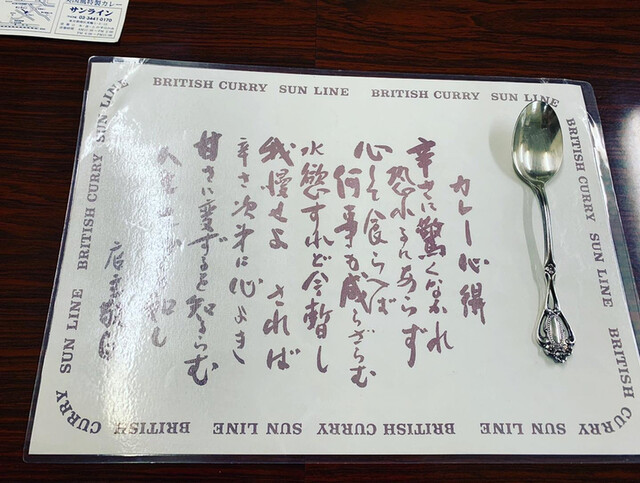 英国風特製カレー
サンライン
03-3441-0170
BRITISH CURRY SUN LINE BRITISH CURRY SUN LINE
BRITISH CURRY SUN LINE
BRITISH CURRY SUN LINE BRITISH CURRY SUN LINE
BRITISH CURRY SUN LINE
カレー心得
辛さに驚くなかれ
恐れるにあらず
心して食らへば
何事も成らざらむ
水慾すれど今暫し
我慢せよ されば
辛さ次第に心よき
甘さに変ずるを知るらむ
人生
知し
店主敬白